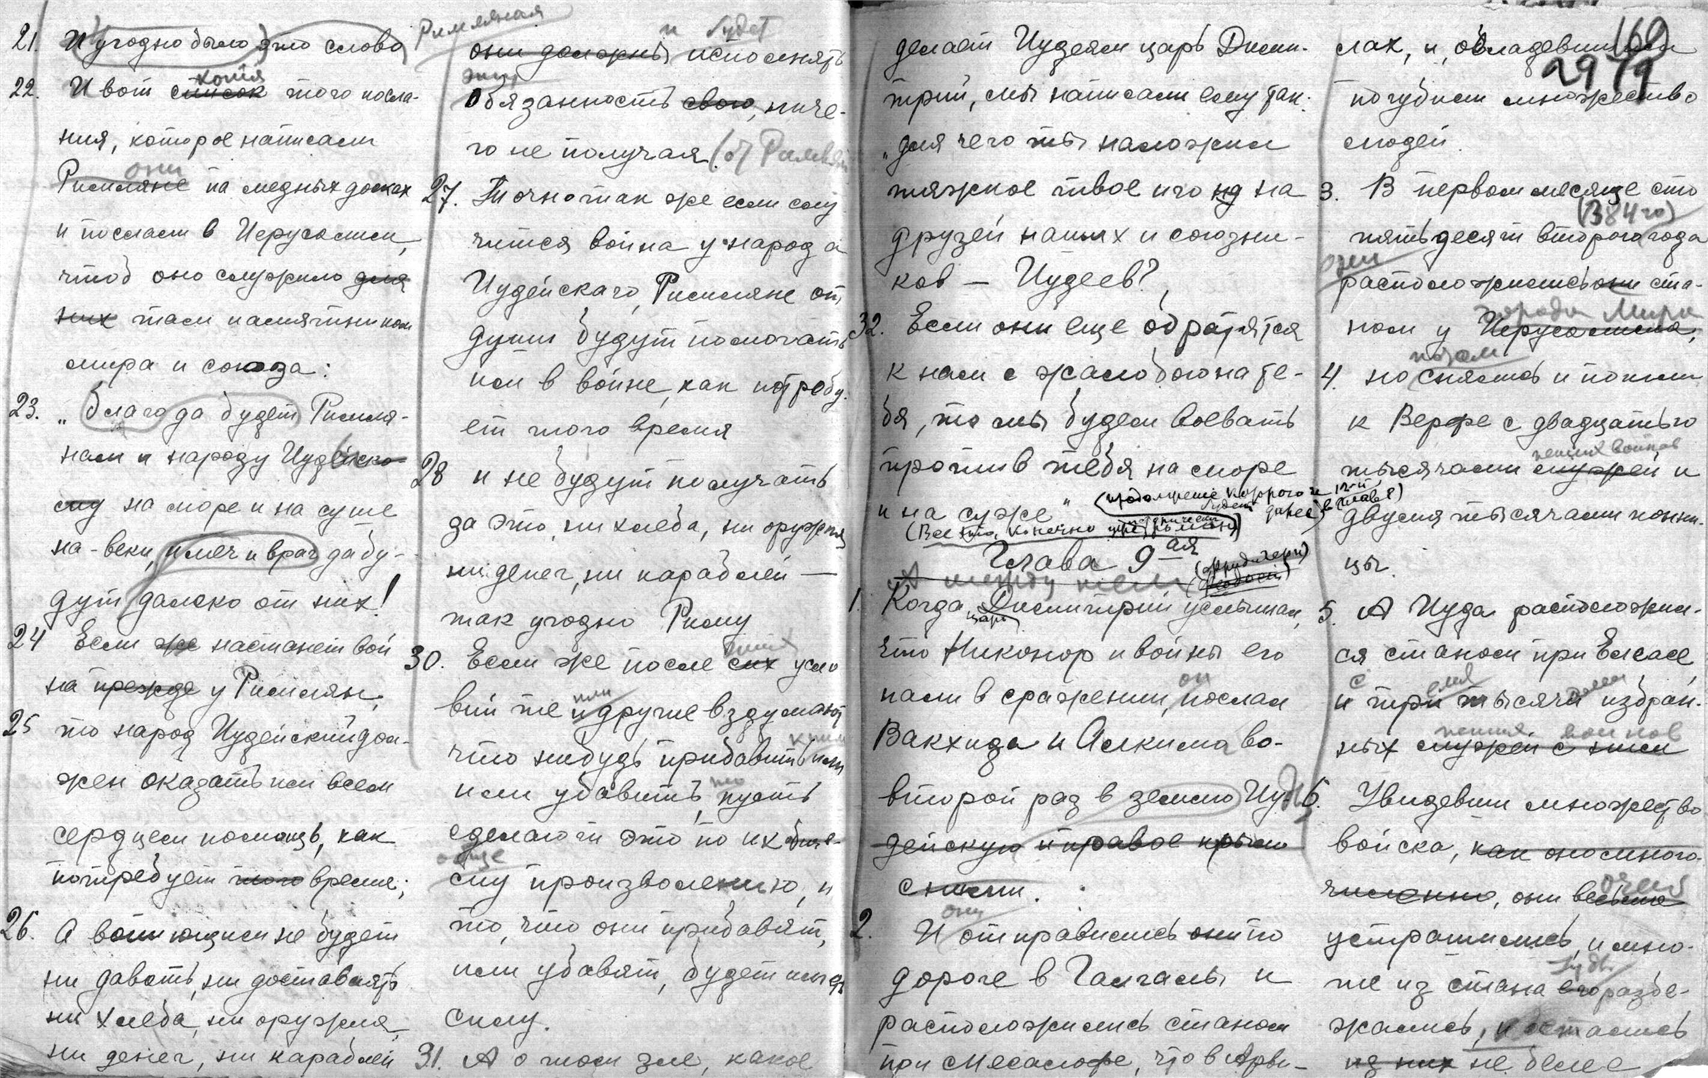 21. И угодно было это слово
22. И вот список копия того посла-
ния, которое написали
Римляне они на медных досках
и послали в Иерусалим,
чтоб оно служило для
них там памятником
мира и союза:
23. „благо да будет Римля-
нам и народу Иудейско-
му на море и на суше
на-веки, и меч и враг да бу-
дут далеко от них!
24 Если же настанет вой
на прежде у Римлян,
25 то народ Иудейский дол-
жен оказать им всем
сердцем помощь, как
потребует того время;
26. А воюющим не будет
ни давать, ни доставлять
ни хлеба, ни оружия,
ни денег, ни караблей
Римляная и будет
они должны исполнять
эту
обязанность свою, ниче-
го не получая. (от Римлян
27. Точно так же если слу
чится война у народа
Иудейскаго, Римляне от
души будут помогать
им в войне, как потребу-
ет того время
28 и не будут получать
за это, ни хлеба, ни оружия
ни денег, ни караблей —
так угодно Риму
30. Если же после сих усло
вий те или и другие вздумают
что нибудь прибавить или
или убавить, то пусть
сделают это по их обще-
обще
му произволению, и
то, что они прибавят,
или убавят, будет иметь
силу.
31. А о том зле, какое
делает Иудеям царь Дими-
трий, мы написали ему так:
„для чего ты наложил
тяжкое твое иго на
друзей наших и союзни-
ков — Иудеев?
32. Если они еще обратятся
к нам с жалобою на те-
бя, то мы будем воевать
против тебя на море
и на суже“ (продолжение которого и будет далее в 12-й главе)
(Все это, конечно
Глава 9-ая
А между тем
1. Когда Димитрий царь услышал,
что Никонор и войны его
пали в сражении, он послал
Вакхида и Алкима во-
второй раз в землю Иу-
дейскую и правое крыло
с ними.
они
2. И отправились они по
дороге в Галгалы и
расположились станом
при Месалофе, что в Арви-
160
29 19
лах, и, овладевши им
погубили множество
людей.
3. В первом месяце сто
(384 го)
пятьдесят второго года
расположились они ста-
города Мира
ном у Иерусалима,
4. но потом снялись и пошли
к Верфе с двадцатью
пеших воинов
тысячами мужей и
двумя тысячами конни-
цы.
5. А Иуда расположил-
ся станом при Еласе
и с три тысячи избран-
ных мужей с ним воинов
6. Увидевши множество
войска, как оно много-
численно, они весьма очень
устрашились, и мно-
гие из стана его Иуды разбе-
жались, и остались
из них не более